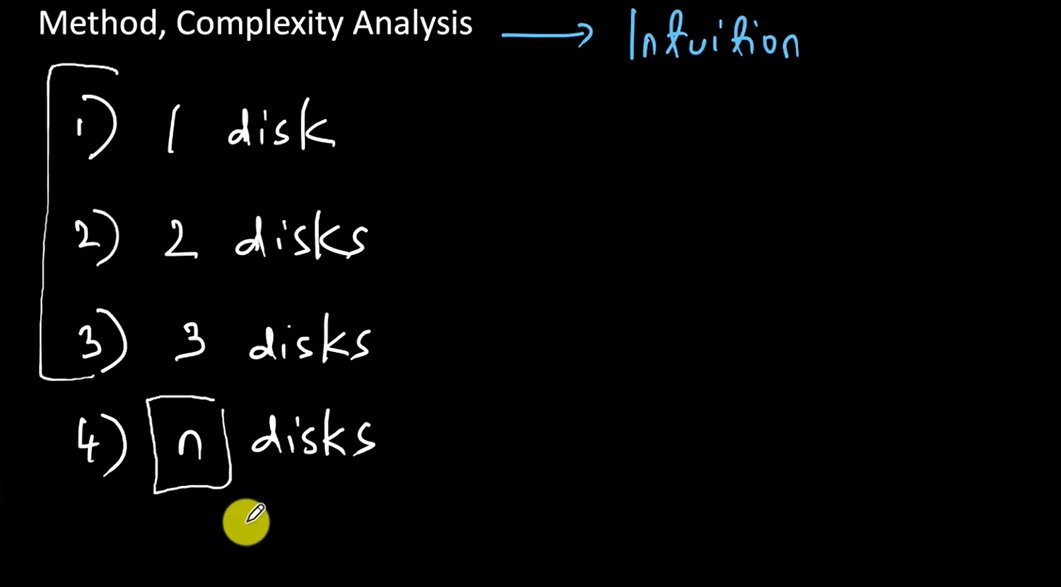 Method, Complexity Analysis → Intuition
1) 1 disk
2) 2 disks
3) 3 disks
4) n disks